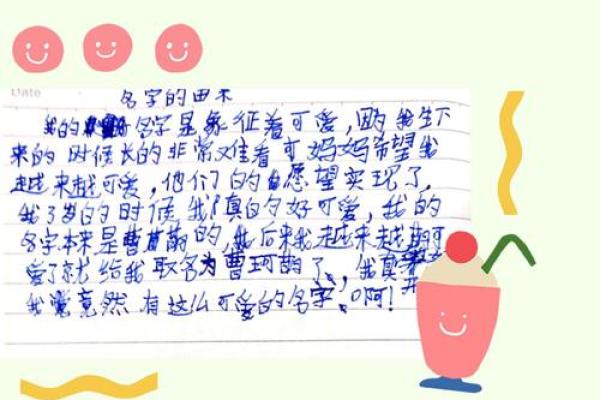 Date
名字的由来
我的名字是象征着可爱,因为我生下
来的时候长的非常难看可妈妈希望我
越来越可爱,他们的愿望实现了,
我3岁的时候我真的好可爱,我的
名字本来是曹萌的,我后来我越来越可
爱了就给我取名为曹珂萌了,我真
我竟然有这么可爱的名字。啊!